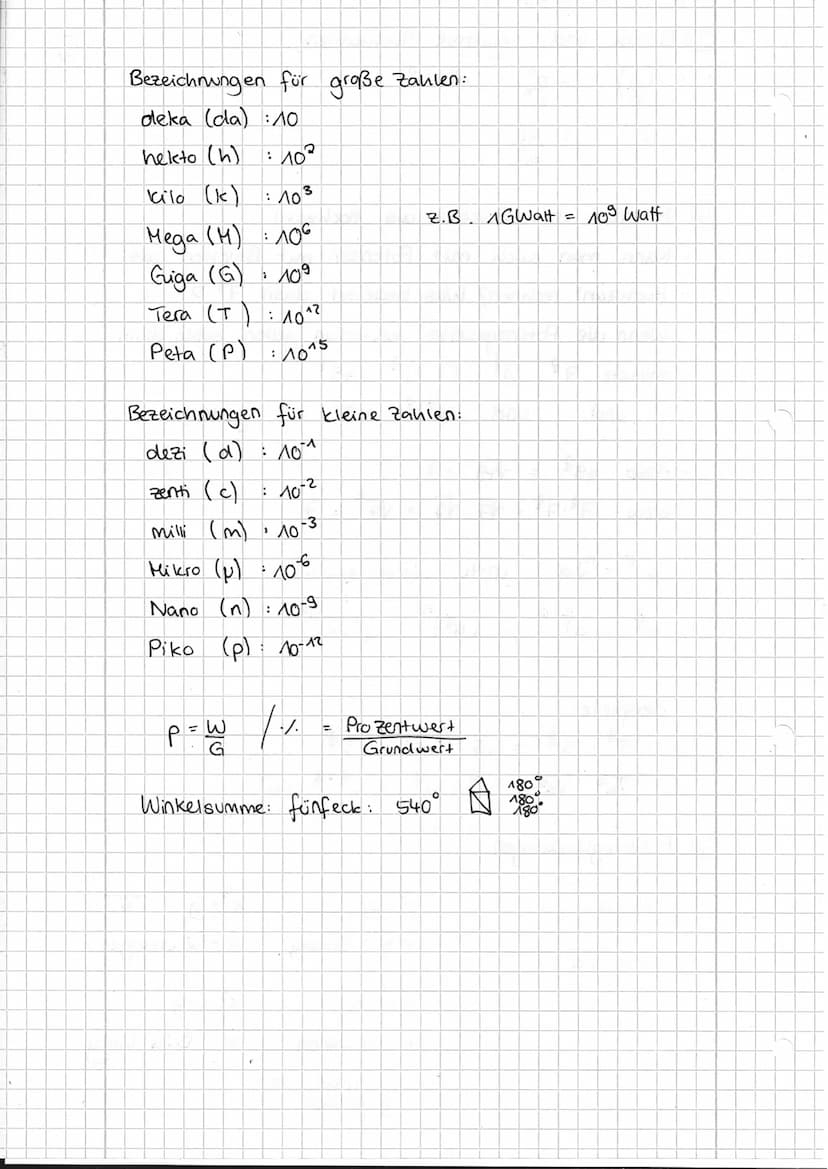 Bezeichnungen für große Zahlen:
deka (da) : 10
hekto (h) : 10²
kilo (k) : 10³
z.B. 1GWatt = 10⁹ Watt
Mega (M) : 10⁶
Giga (G) : 10⁹
Tera (T) : 10¹²
Peta (P) : 10¹⁵
Bezeichnungen für kleine Zahlen:
dezi (d) : 10⁻¹
zenti (c) : 10⁻²
milli (m) : 10⁻³
Mikro (µ) : 10⁻⁶
Nano (n) : 10⁻⁹
Piko (p) : 10⁻¹²
p = W/G / ·/. = Prozentwert/Grundwert
Winkelsumme: fünfeck: 540° 180°
180°
180°